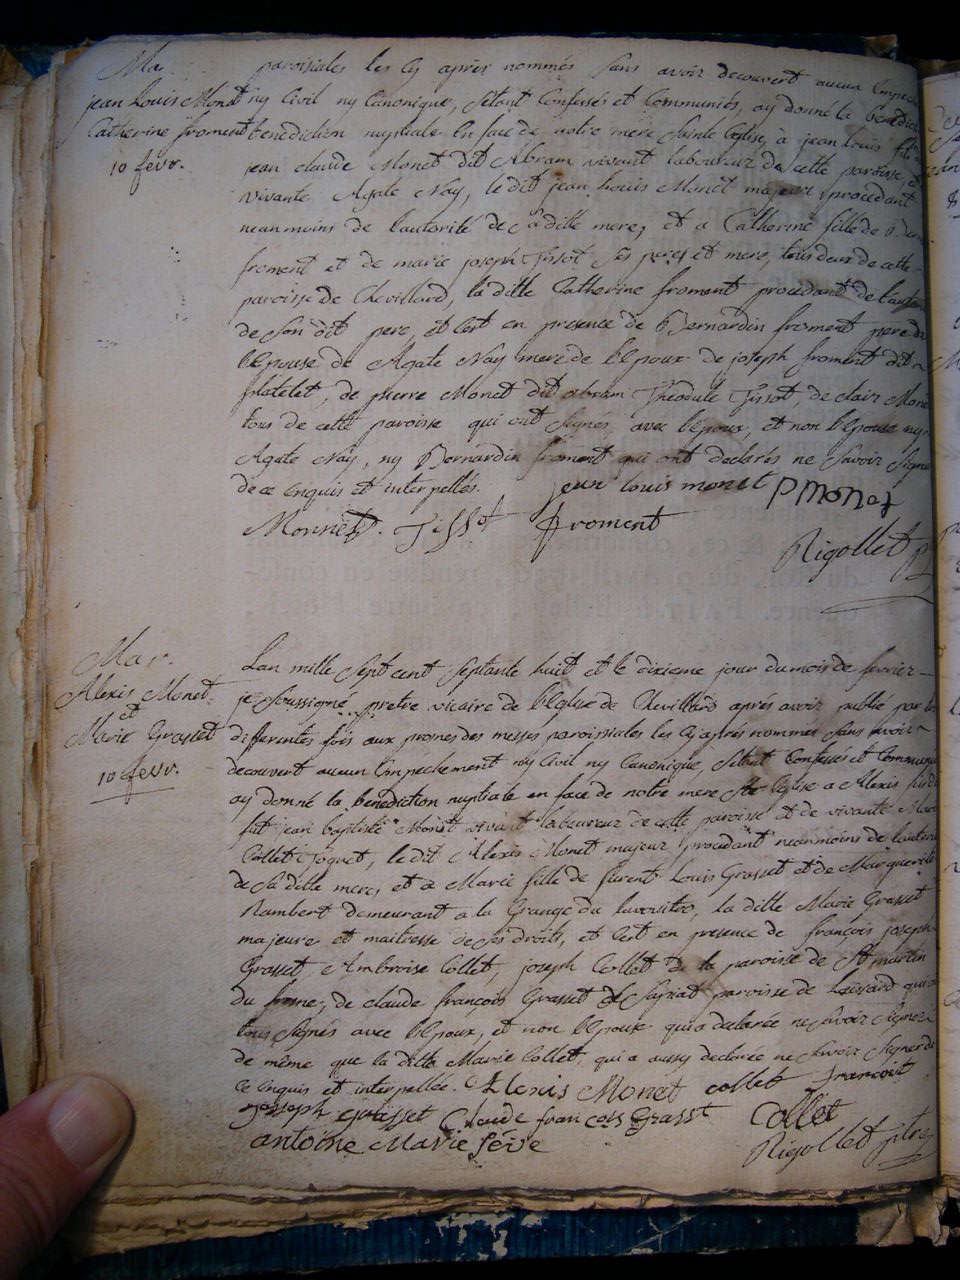 Ma.
jean Louis Monet
Catherine froment
10 fevr.
paroisiales les cy après nommés sans avoir decouvert aucun Empeche
ny Civil ny Canonique, s'étant Confessés et Communiés, ay donné la benedict
benediction nuptiale En face de notre mere Sainte Eglise, à jean louis fils
jean claude Monet dit Abram vivant laboureur de cette paroisse, et
vivante Agate Nay, le dit jean Louis Monet majeur procedant
neanmoins de l'autorité de sa ditte mere, et a Catherine fille de Bern
froment et de marie joseph Tissot ses peres et mere, tous deux de cette
paroisse de Chevillard, la ditte Catherine froment procedant de l'autor
de son dit pere et C'est en presence de Bernardin froment pere de
l'Epouse de Agate Nay mere de l'Epoux de joseph froment dit
platelet, de pierre Monet dit abram Theodule Tissot, de clair Mone
tous de cette paroisse qui ont signés avec l'Epoux, et non l'Epouse ny
Agate Nay, ny Bernardin froment qui ont declarés ne sçavoir signer
de ce Enquis et interpellés.
jean louis monet PMonet
Monnet. Tissot froment
Rigollet
Mar.
Alexis Monet
et
Marie Grasset
10 fevr.
Lan mille Sept cent Septante huit et le dixieme jour du mois de fevrier
je soussigné pretre vicaire de l'Eglise de Chevillard après avoir publié par
differentes fois aux prones des messes paroissiales les Cy après nommés sans avoir
decouvert aucun Empechement ny Civil ny Canonique, s'étant Confessés et Communiés
ay donné la benediction nuptiale en face de notre mere Ste Eglise a Alexis fils de
fut jean baptiste Monet vivant laboureur de cette paroisse et de vivante Marie
Collet Joquet, le dit Alexis Monet majeur procedant neanmoins de l'autorité
de sa ditte mere, et a Marie fille de florent Louis Grasset et de Marguerite
Rambert demeurant a la Grange du la ditte Marie Grasset
majeure et maitresse de ses droits, et C'est en presence de françois joseph
Grasset, Ambroise Collet, joseph Collet de la paroisse de St martin
du frene, de claude françois Grasset de paroisse de Leissard qui
tous signés avec l'Epoux, et non l'Epouse qui a declarée ne sçavoir signer
de même que la ditte Marie Collet, qui a aussy declarée ne sçavoir signer de
ce Enquis et interpellée. Alexis Monet collet francoit
Joseph Grasset Claude francois Grasst Collet
antoine Marie Séve
Rigollet ptre